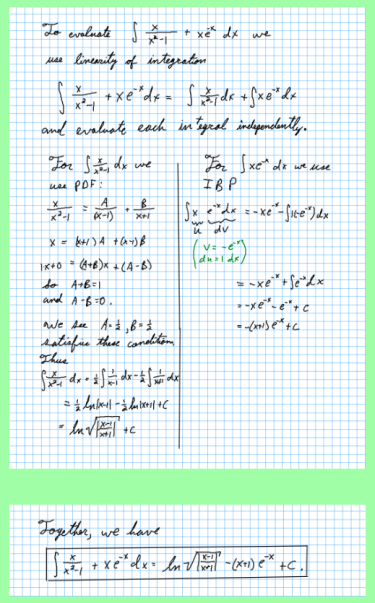 To evaluate ∫ x/(x²-1) + xe^(-x) dx we
use linearity of integration
∫ x/(x²-1) + xe^(-x) dx = ∫ x/(x²-1) dx + ∫ xe^(-x) dx
and evaluate each integral independently.
For ∫ x/(x²-1) dx we
use PDF:
x/(x²-1) = A/(x-1) + B/(x+1)
x = (x+1)A + (x-1)B
1x+0 = (A+B)x + (A-B)
So A+B=1
and A-B=0.
We see A=½, B=½
satisfies these conditions
Thus
∫ x/(x²-1) dx = ½∫ 1/(x-1) dx - ½∫ 1/(x+1) dx
= ½ ln|x-1| - ½ ln|x+1| + C
= ln√|(x-1)/(x+1)| + C
For ∫ xe^(-x) dx we use
IBP
∫ x e^(-x) dx = -xe^(-x) - ∫ 1(-e^(-x)) dx
u dv
(v = -e^(-x)
du = 1 dx)
= -xe^(-x) + ∫ e^(-x) dx
= -xe^(-x) - e^(-x) + C
= -(x+1)e^(-x) + C
Together, we have
∫ x/(x²-1) + xe^(-x) dx = ln√|(x-1)/(x+1)| - (x+1)e^(-x) + C.